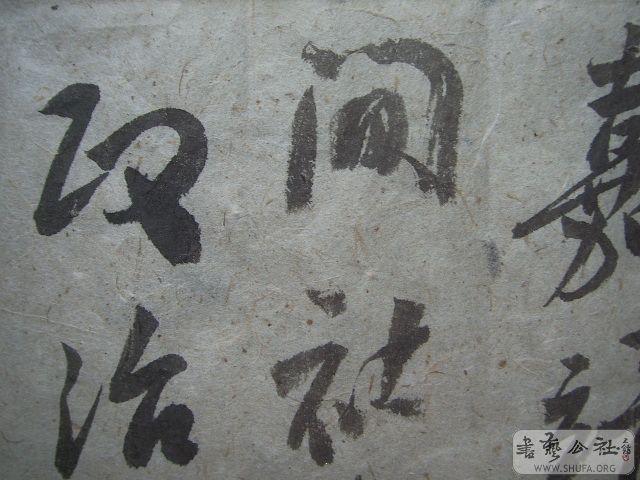 嘉
間社
治
書藝公社
WWW.SHUFA.ORG